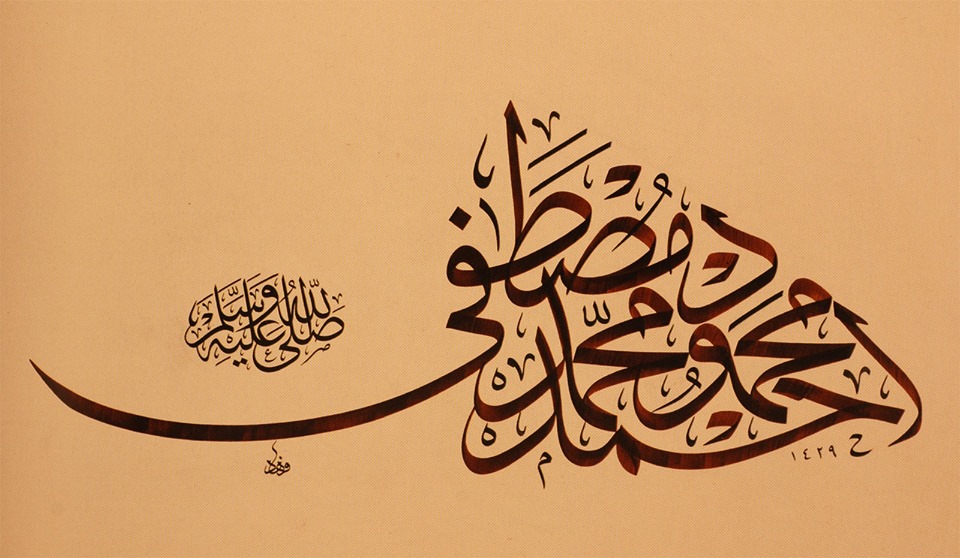 احمد محمود محمد مصطفى
صلى الله عليه وسلم
١٤٢٩